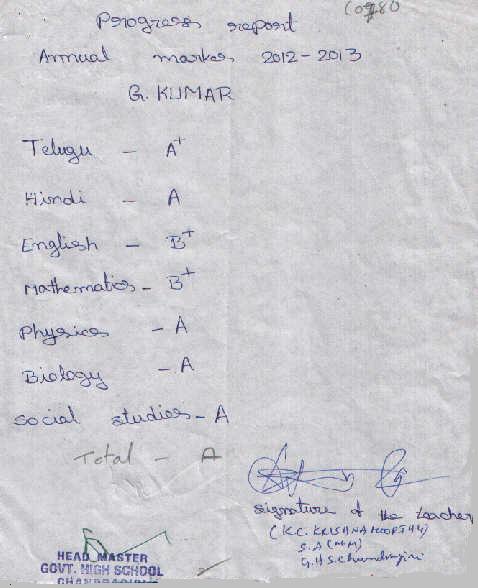 Progress report
Annual marks 2012-2013
G. KUMAR
Telugu - A+
Hindi - A
English - B+
Mathematics - B+
Physics - A
Biology - A
Social studies - A
Total - A
Signature of the teacher
(K.C. KRISHNA MOORTHY)
S.A (MM)
G.H.S.
HEAD MASTER
GOVT. HIGH SCHOOL